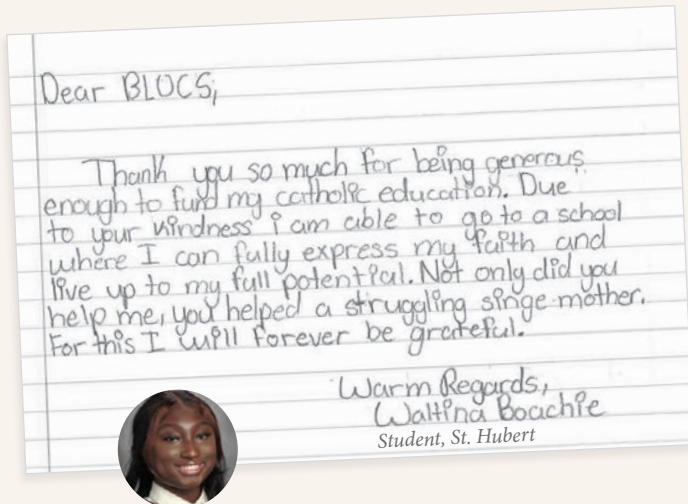 Dear BLOCS,
Thank you so much for being generous
enough to fund my catholic education. Due
to your kindness i am able to go to a school
where I can fully express my faith and
live up to my full potential. Not only did you
help me, you helped a struggling singe mother.
For this I will forever be grateful.
Warm Regards,
Waltina Boachie
Student, St. Hubert